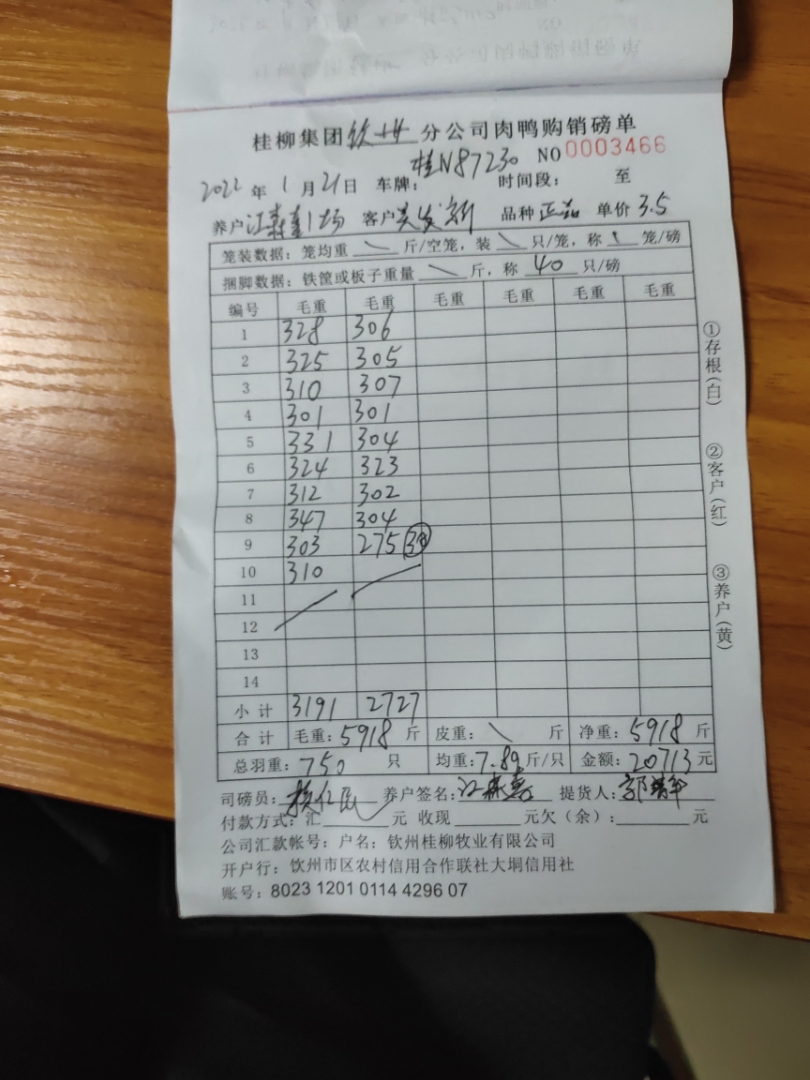 桂柳集团钦州分公司肉鸭购销磅单
桂N87230 NO 0003466
2022年1月21日 车牌： 时间段： 至
养户江森喜1场 客户吴发新 品种正品 单价3.5
笼装数据：笼均重\斤/空笼，装\只/笼，称\笼/磅
捆脚数据：铁筐或板子重量\斤，称40只/磅
编号 毛重 毛重 毛重 毛重 毛重 毛重
1 328 306
2 325 305
3 310 307
4 301 301
5 331 304
6 324 323
7 312 302
8 347 304
9 303 275
10 310
11
12
13
14
小计 3191 2727
合计 毛重：5918斤 皮重：\斤 净重：5918斤
总羽重：750只 均重：7.89斤/只 金额：20713元
司磅员： 养户签名：江森喜 提货人：
付款方式：汇 元 收现 元欠（余）： 元
公司汇款帐号：户名：钦州桂柳牧业有限公司
开户行：钦州市区农村信用合作联社大垌信用社
账号：8023 1201 0114 4296 07
①存根(白)
②客户(红)
③养户(黄)